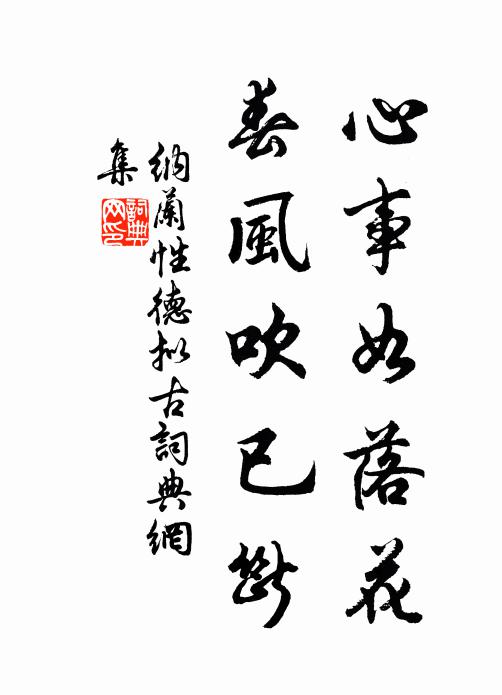 心事如落花
春風吹已斷
納蘭性德拟古詞典網
集
詞典
网印